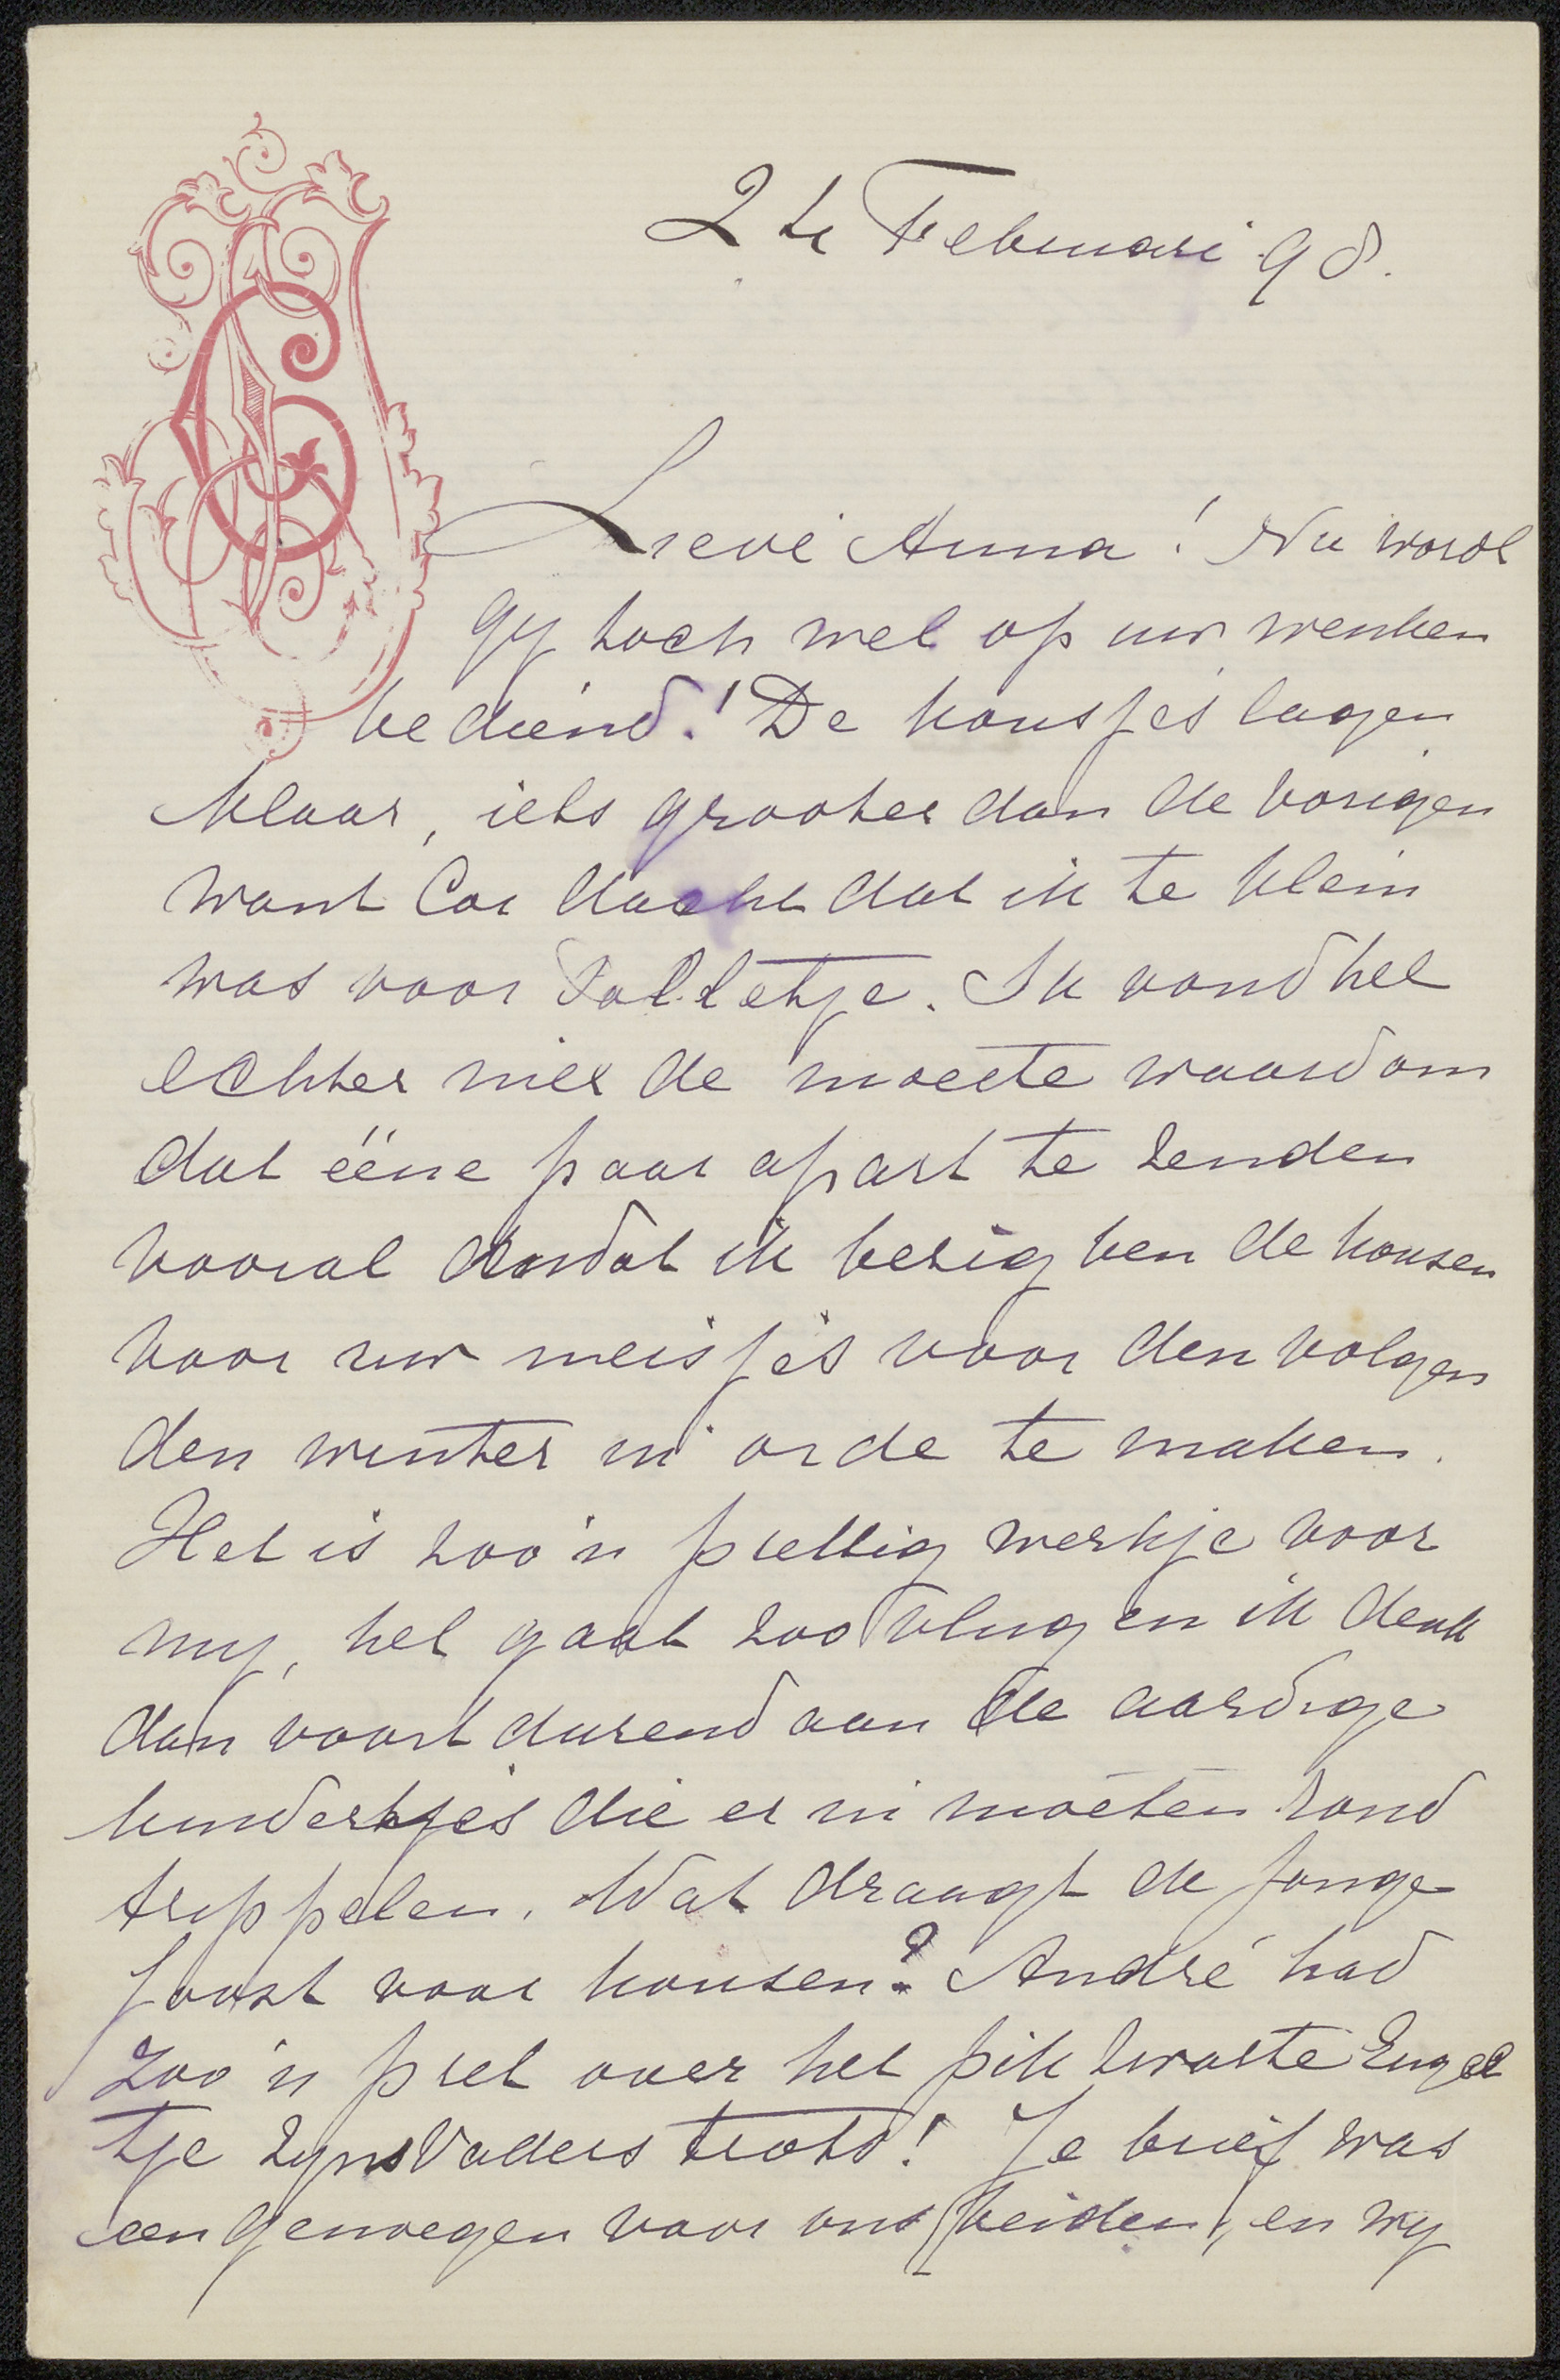 2de Februari 98.
Lieve Anna! Nu wordt
gij toch wel op uw wenken
bediend! De kousjes lagen
klaar, iets grooter dan de vorigen
want Cor dacht dat ik te klein
was voor Dolletje. Ik vond het
echter niet de moeite waard om
dat ééne paar apart te zenden
vooral omdat ik bezig ben de kousen
voor uw meisjes voor den volgen
den winter in orde te maken.
Het is zoo'n prettig werkje voor
mij, het gaat zoo vlug en ik denk
dan voortdurend aan de aardige
kindertjes die er in moeten rond
trippelen. Wat draagt de jonge
Joost voor kousen? André had
zoo'n pret over het pik zwarte Engel
tje zijns Vaders trots! Je brief was
een genoegen voor ons beiden, en wij